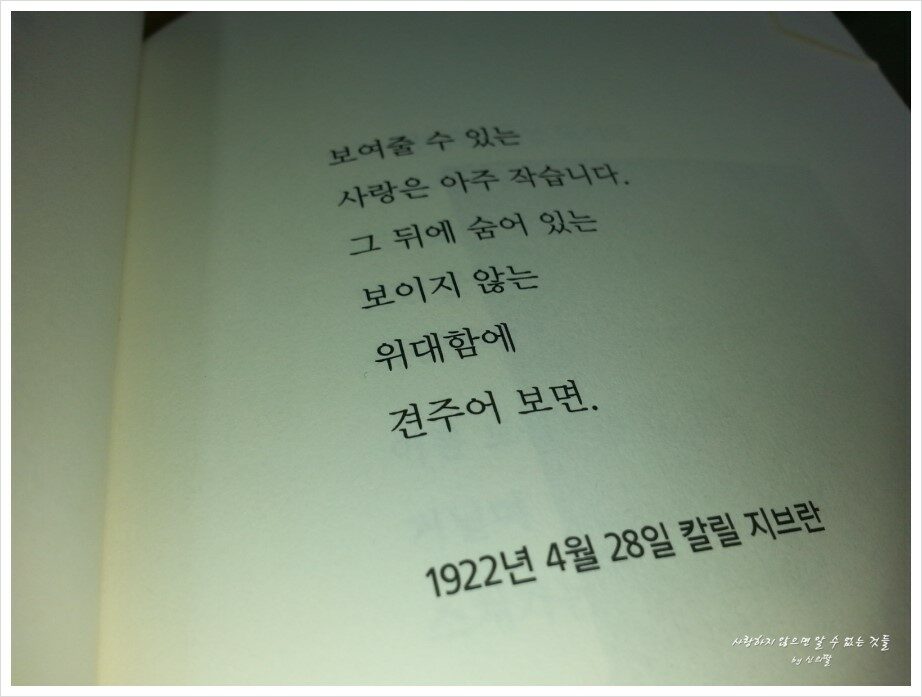 보여줄 수 있는
사랑은 아주 작습니다.
그 뒤에 숨어 있는
보이지 않는
위대함에
견주어 보면.
1922년 4월 28일 칼릴 지브란
사랑하지 않으면 알 수 없는 것들
by 신의딸